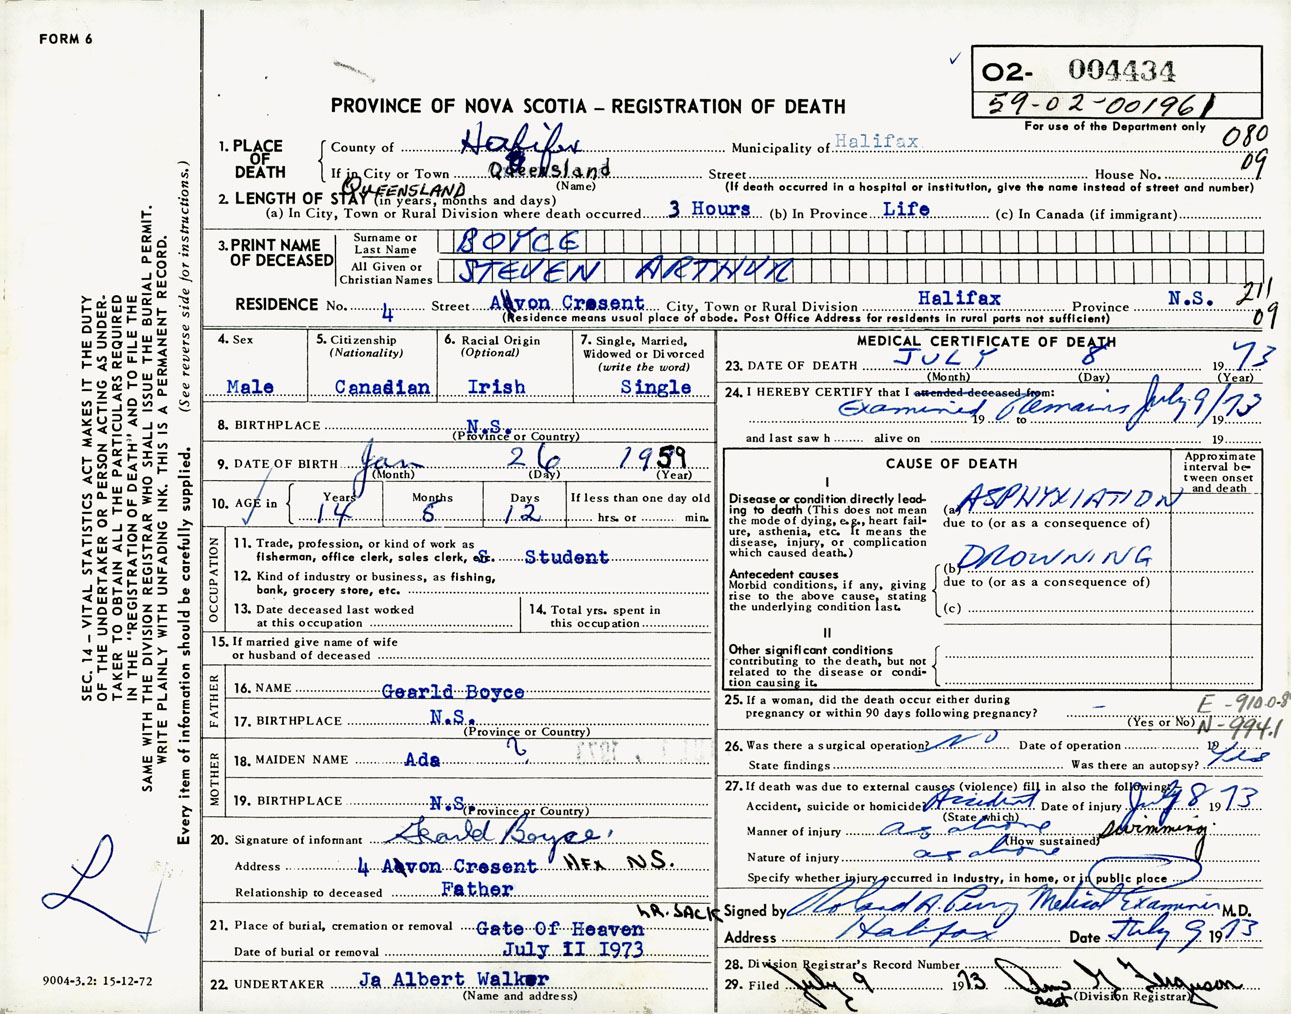 FORM 6
O2- 004434
59-02-001961
PROVINCE OF NOVA SCOTIA – REGISTRATION OF DEATH
For use of the Department only
080
09
1. PLACE OF DEATH
County of Halifax Municipality of Halifax
If in City or Town Queensland Street House No.
(Name) (If death occurred in a hospital or institution, give the name instead of street and number)
QUEENSLAND
2. LENGTH OF STAY (in years, months and days)
(a) In City, Town or Rural Division where death occurred 3 Hours (b) In Province Life (c) In Canada (if immigrant)
3. PRINT NAME OF DECEASED
Surname or Last Name BOYCE
All Given or Christian Names STEVEN ARTHUR
RESIDENCE No. 4 Street Avon Cresent City, Town or Rural Division Halifax Province N.S.
211
09
(Residence means usual place of abode. Post Office Address for residents in rural parts not sufficient)
4. Sex
Male
5. Citizenship
(Nationality)
Canadian
6. Racial Origin
(Optional)
Irish
7. Single, Married,
Widowed or Divorced
(write the word)
Single
8. BIRTHPLACE N.S.
(Province or Country)
9. DATE OF BIRTH Jan 26 1959
(Month) (Day) (Year)
10. AGE in
Years Months Days If less than one day old
14 5 12 hrs. or min.
OCCUPATION
11. Trade, profession, or kind of work as
fisherman, office clerk, sales clerk, etc. Student
12. Kind of industry or business, as fishing,
bank, grocery store, etc.
13. Date deceased last worked
at this occupation
14. Total yrs. spent in
this occupation
15. If married give name of wife
or husband of deceased
FATHER
16. NAME Gearld Boyce
17. BIRTHPLACE N.S.
(Province or Country)
MOTHER
18. MAIDEN NAME Ada ?
19. BIRTHPLACE N.S.
(Province or Country)
20. Signature of informant Gearld Boyce
Address 4 Avon Cresent HFX N.S.
Relationship to deceased Father
LR. SACK
21. Place of burial, cremation or removal Gate Of Heaven
Date of burial or removal July II 1973
22. UNDERTAKER Ja Albert Walker
(Name and address)
MEDICAL CERTIFICATE OF DEATH
23. DATE OF DEATH JULY 8 1973
(Month) (Day) (Year)
24. I HEREBY CERTIFY that I attended deceased from:
Examined Remains July 9/73
19 to 19
and last saw h alive on 19
CAUSE OF DEATH
Approximate interval between onset and death
I
Disease or condition directly leading to death (This does not mean the mode of dying, e.g., heart failure, asthenia, etc. It means the disease, injury, or complication which caused death.)
(a) ASPHYXIATION
due to (or as a consequence of)
Antecedent causes
Morbid conditions, if any, giving rise to the above cause, stating the underlying condition last.
(b) DROWNING
due to (or as a consequence of)
(c)
II
Other significant conditions
contributing to the death, but not related to the disease or condition causing it.
25. If a woman, did the death occur either during
pregnancy or within 90 days following pregnancy? –
(Yes or No)
E-910.0-8
N-994.1
26. Was there a surgical operation? No Date of operation 19
State findings Was there an autopsy? Yes
27. If death was due to external causes (violence) fill in also the following:
Accident, suicide or homicide? Accident Date of injury July 8 1973
(State which)
Manner of injury as above swimming
(How sustained)
Nature of injury as above
Specify whether injury occurred in Industry, in home, or in public place
Signed by Roland A. Perry Medical Examiner M.D.
Address Halifax Date July 9 1973
28. Division Registrar's Record Number
29. Filed July 9 1973 Ferguson
(Division Registrar)
SEC. 14 – VITAL STATISTICS ACT MAKES IT THE DUTY
OF THE UNDERTAKER OR PERSON ACTING AS UNDER-
TAKER TO OBTAIN ALL THE PARTICULARS REQUIRED
IN THE "REGISTRATION OF DEATH" AND TO FILE THE
SAME WITH THE DIVISION REGISTRAR WHO SHALL ISSUE THE BURIAL PERMIT.
WRITE PLAINLY WITH UNFADING INK. THIS IS A PERMANENT RECORD.
Every item of information should be carefully supplied. (See reverse side for instructions.)
9004-3.2: 15-12-72